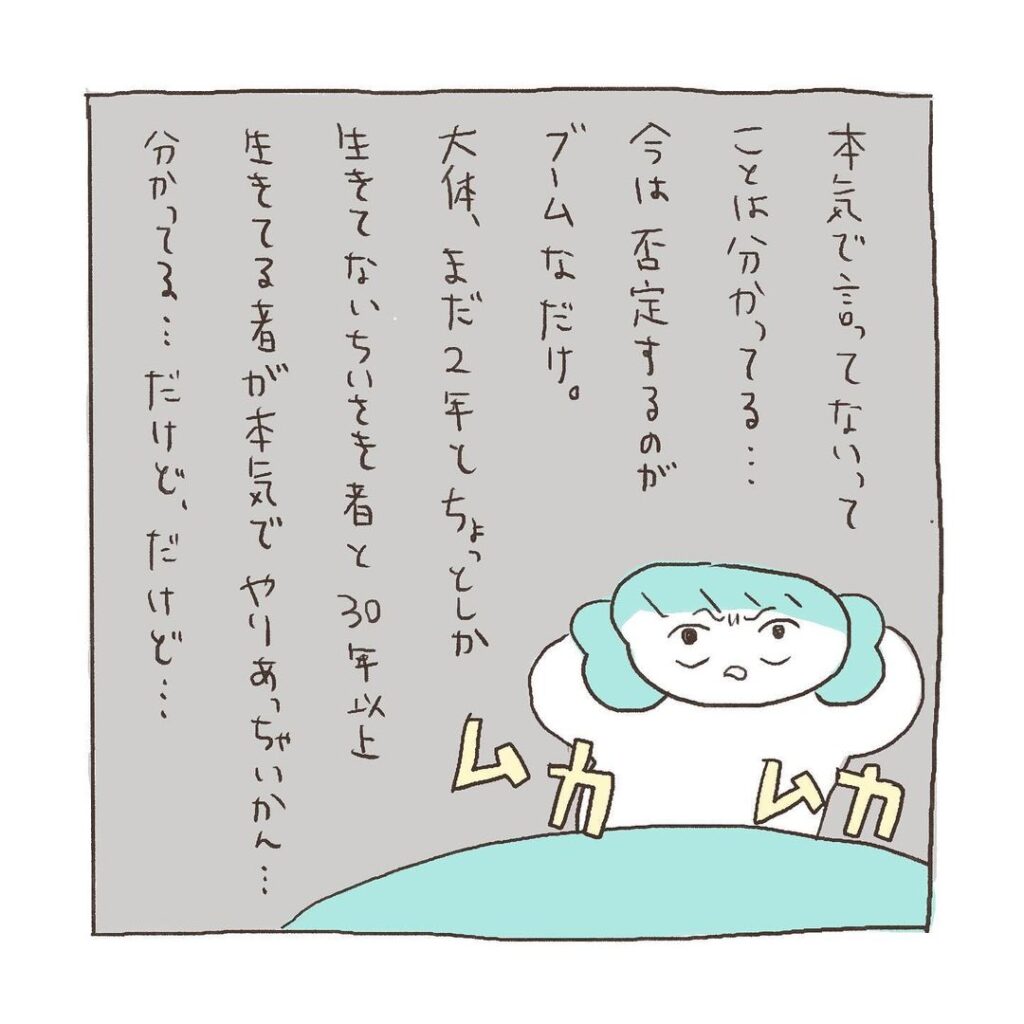 本気で言ってないって
ことは分かってる…
今は否定するのが
ブームなだけ。
大体、まだ2年とちょっとしか
生きてないちいさき者と30年以上
生きてる者が本気でやりあっちゃいかん…
分かってる…だけど、だけど…
ムカ
ムカ